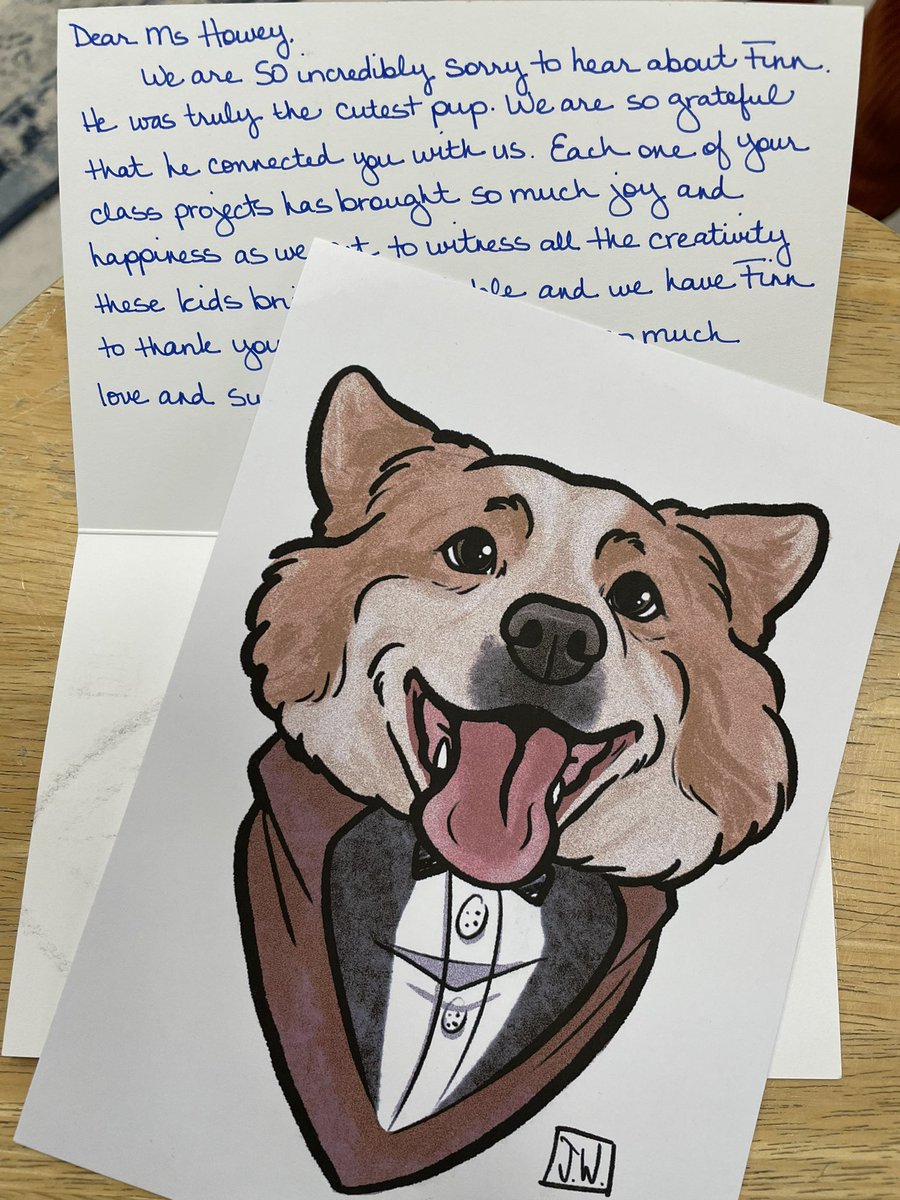 Dear Ms Howey.
We are SO incredibly sorry to hear about Finn.
He was truly the cutest pup. We are so grateful
that he connected you with us. Each one of your
class projects has brought so much joy and
happiness as we to witness all the creativity
these kids and we have Finn
to thank you much
love and
J.W.